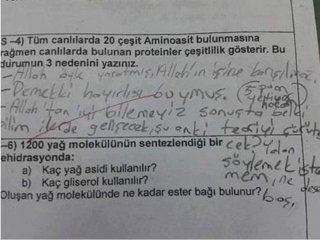 S -4) Tüm canlılarda 20 çeşit Aminoasit bulunmasına
rağmen canlılarda bulunan proteinler çeşitlilik gösterir. Bu
durumun 3 nedenini yazınız.
- Allah öyle yaratmış, Allah'ın işine karışılmaz.
- Demekki hayırlısı buymuş.
5 puan
yetiyor
hocam
- Allah'tan iyi bilemeyiz sonuçta belki
ilim ilerde gelişecek, şu anki teoriyi çürüte
cek
-6) 1200 yağ molekülünün sentezlendiği bir
ehidrasyonda:
söylemek iste
mem, ne
boş.
a) Kaç yağ asidi kullanılır?
b) Kaç gliserol kullanılır?
Oluşan yağ molekülünde ne kadar ester bağı bulunur?